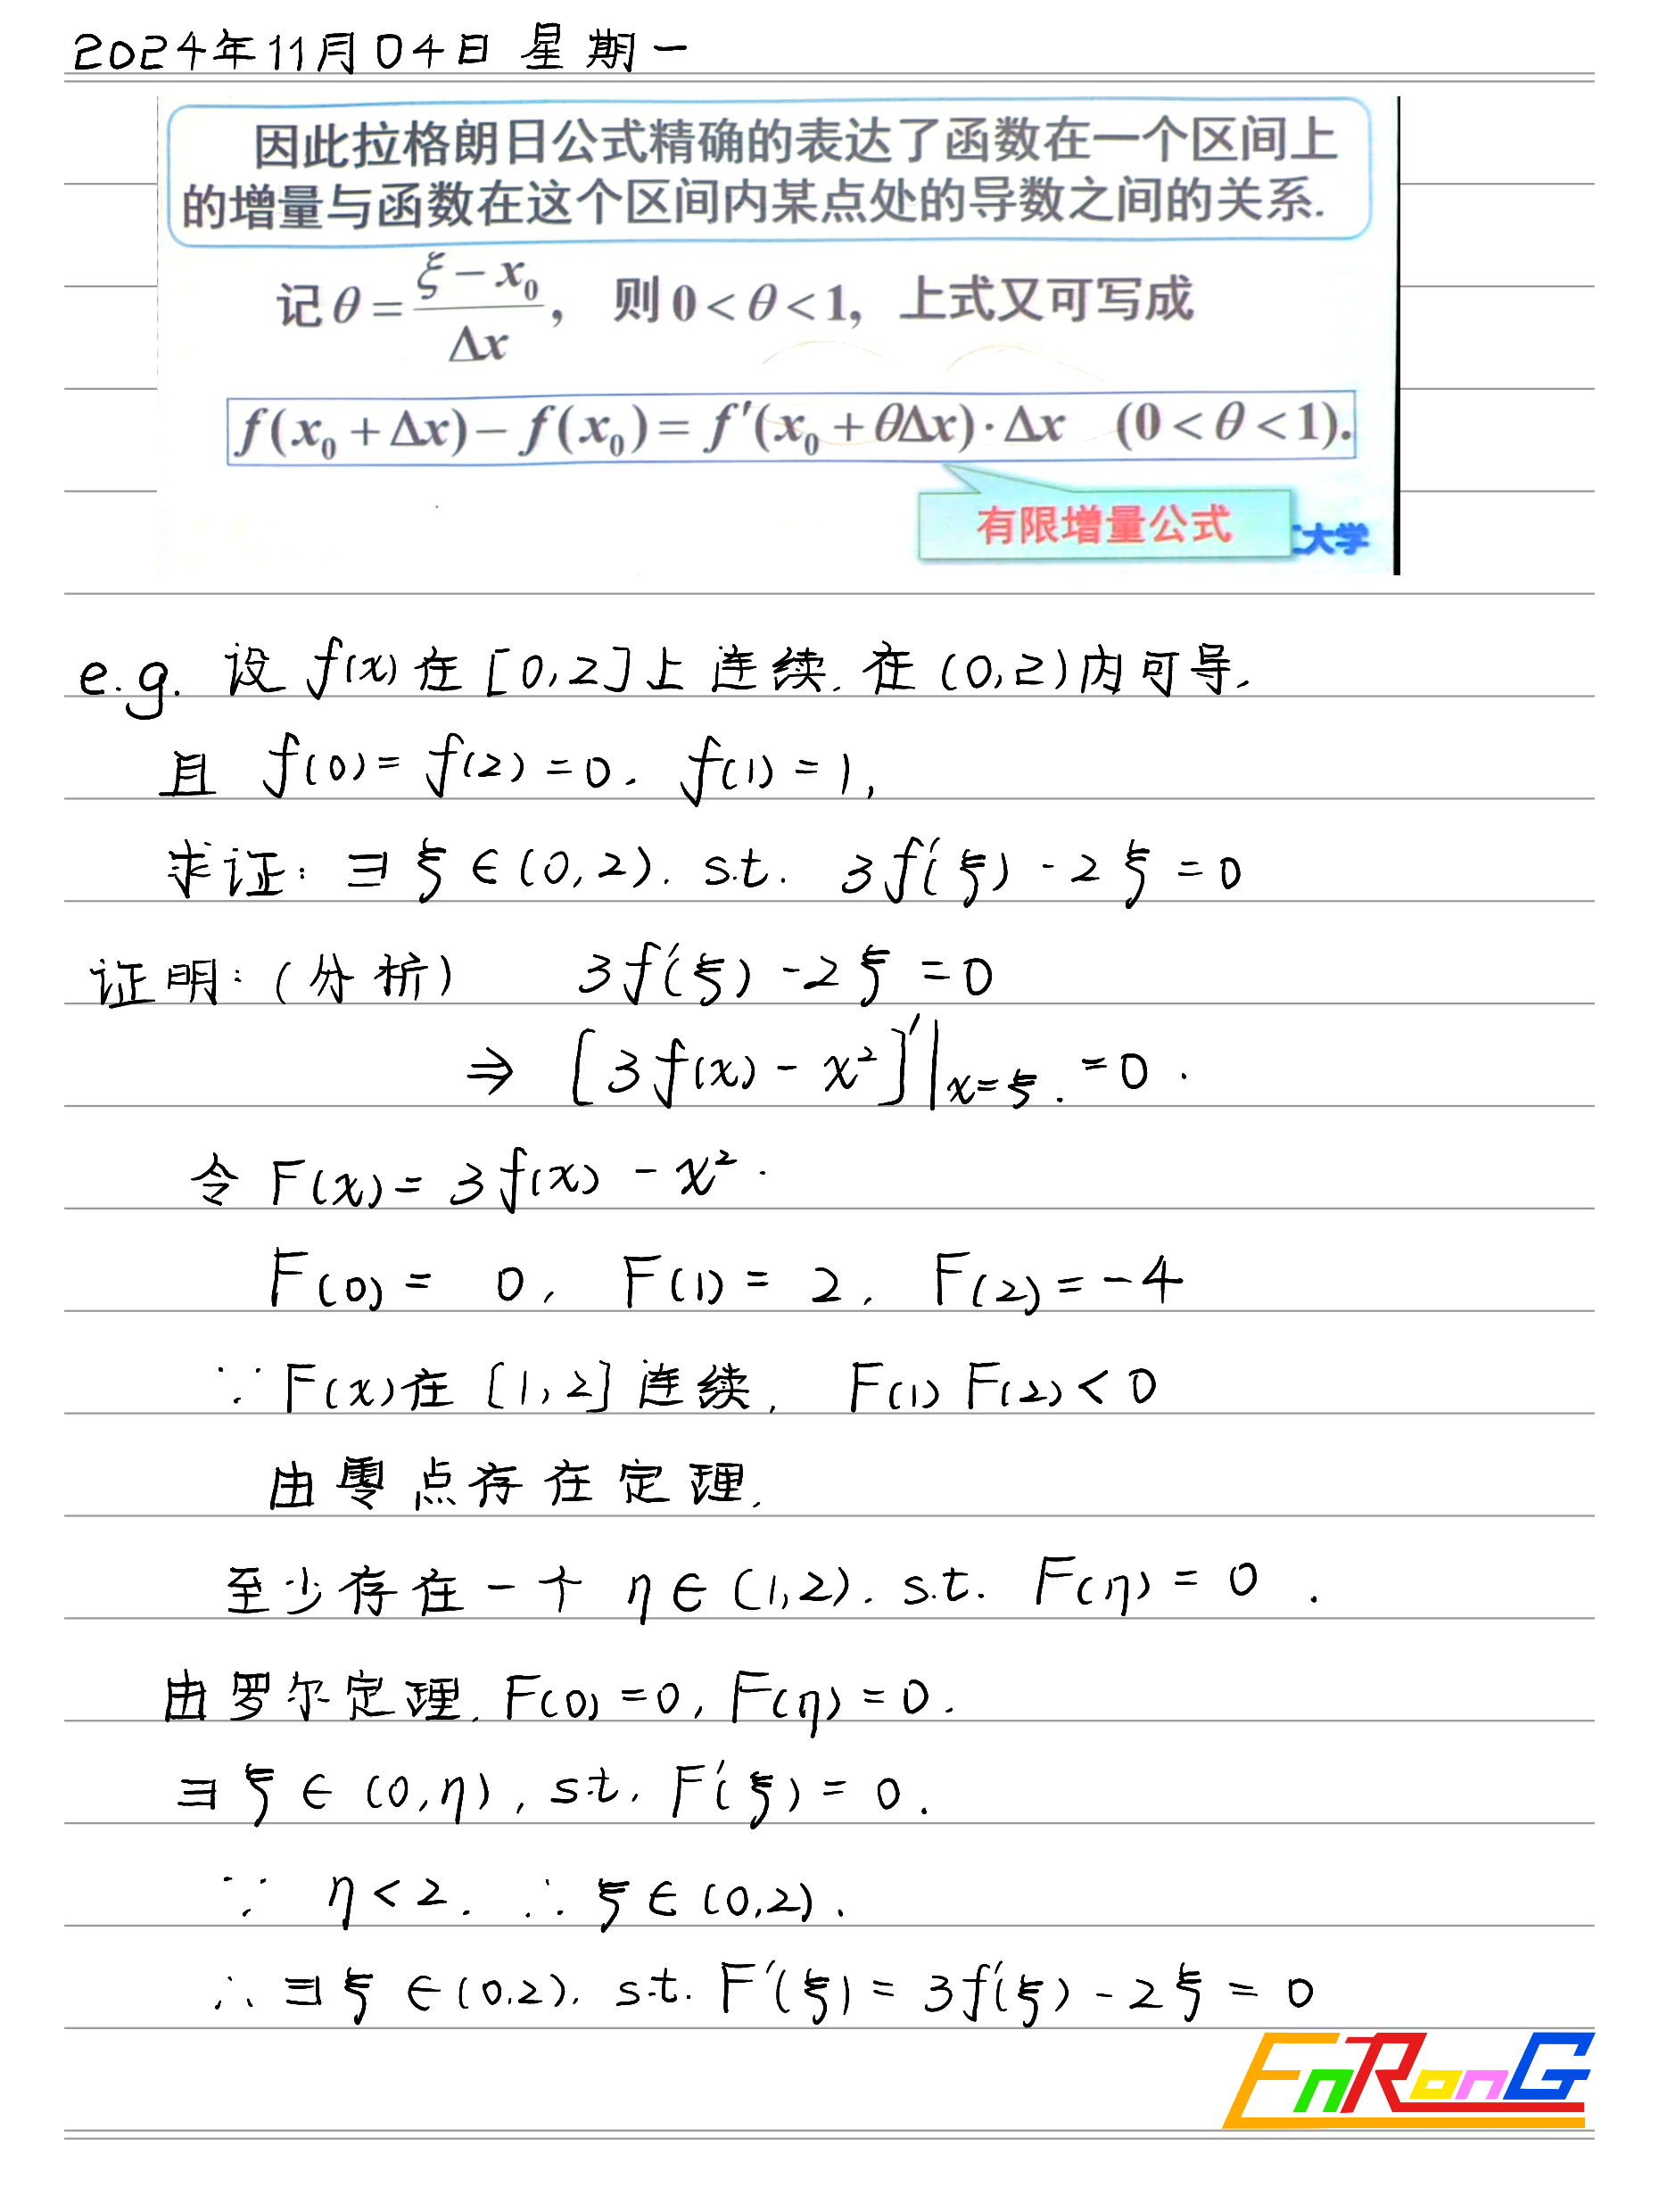 2024年11月04日 星期一
因此拉格朗日公式精确的表达了函数在一个区间上
的增量与函数在这个区间内某点处的导数之间的关系.
记 θ = (ξ − x₀)/Δx， 则 0 < θ < 1, 上式又可写成
f(x₀ + Δx) − f(x₀) = f′(x₀ + θΔx)·Δx (0 < θ < 1).
有限增量公式
大学
e.g. 设 f(x) 在 [0,2] 上 连续. 在 (0,2) 内可导.
且 f(0) = f(2) = 0. f(1) = 1,
求证: ∃ ξ ∈ (0,2). s.t. 3f′(ξ) - 2ξ = 0
证明: (分析) 3f′(ξ) - 2ξ = 0
⇒ [3f(x) - x²]′|x=ξ. = 0.
令 F(x) = 3f(x) - x².
F(0) = 0, F(1) = 2, F(2) = -4
∵ F(x) 在 [1,2] 连续, F(1) F(2) < 0
由零点存在定理.
至少存在一个 η ∈ (1,2). s.t. F(η) = 0.
由罗尔定理. F(0) = 0, F(η) = 0.
∃ ξ ∈ (0,η), s.t. F′(ξ) = 0.
∵ η < 2. ∴ ξ ∈ (0,2).
∴ ∃ ξ ∈ (0,2). s.t. F′(ξ) = 3f′(ξ) - 2ξ = 0
EnRonG